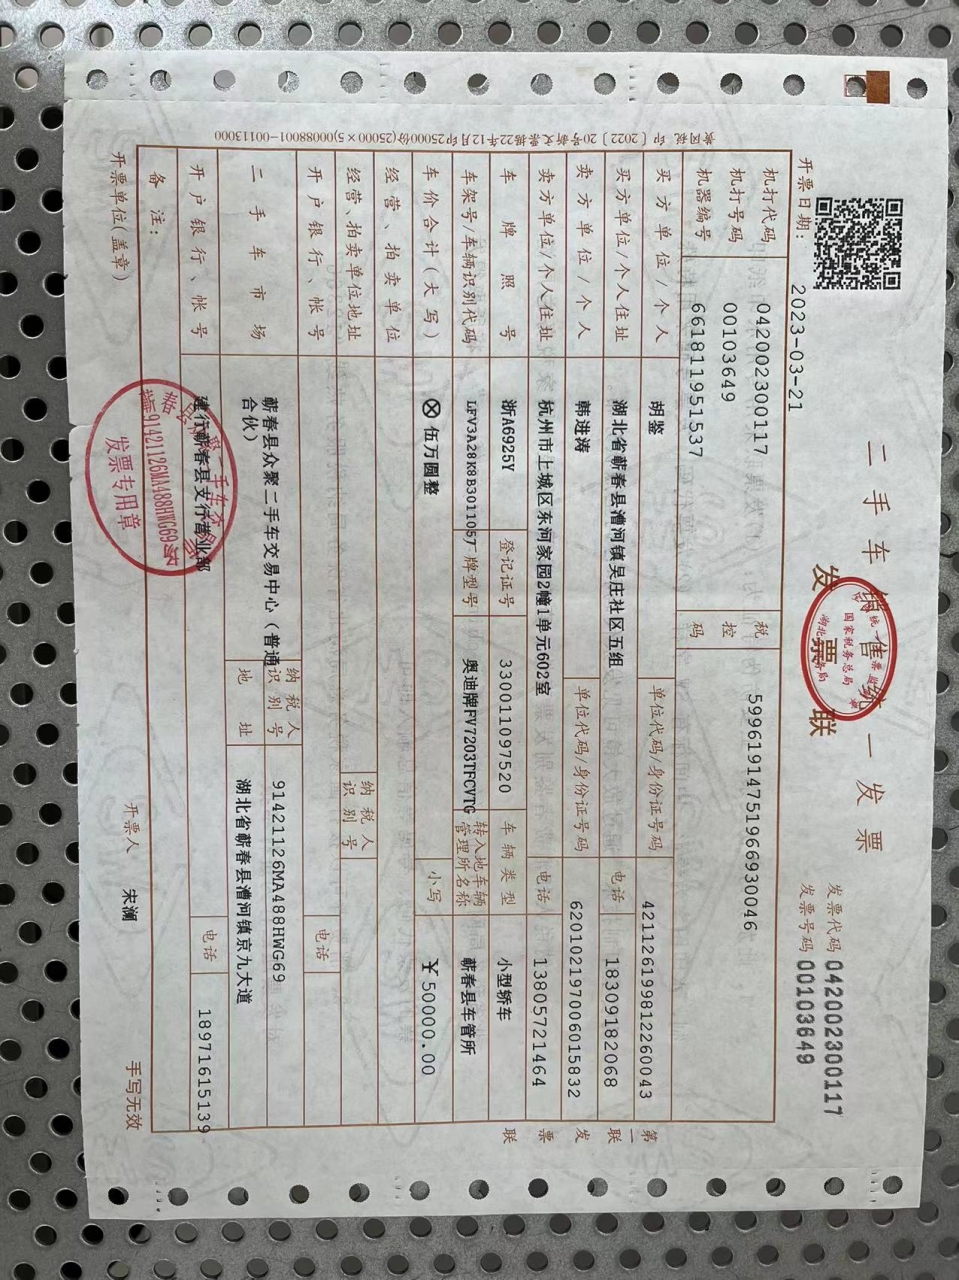 二手车销售统一发票
发票联
发票代码 042002300117
发票号码 00103649
开票日期: 2023-03-21
机打代码 042002300117
机打号码 00103649
机器编号 661811951537
税控码 59961914751966930046
买方单位/个人 胡鉴 单位代码/身份证号码 421126199812260043
买方单位/个人住址 湖北省蕲春县漕河镇吴庄社区五组 电话 18309182068
卖方单位/个人 韩进涛 单位代码/身份证号码 620102197006015832
卖方单位/个人住址 杭州市上城区东河家园2幢1单元602室 电话 13805721464
车牌照号 浙A6925Y 登记证号 330011097520 车辆类型 小型轿车
车架号/车辆识别代码 LFV3A28K8B3011057 牌型号 奥迪牌FV7203TFCVTG 转入地车辆管理所名称 蕲春县车管所
车价合计(大写) ⊗伍万圆整 小写 ¥50000.00
经营、拍卖单位
经营、拍卖单位地址 纳税人识别号
开户银行、帐号 电话
二手车市场 蕲春县众聚二手车交易中心(普通合伙) 纳税人识别号 91421126MA488HWG69
地址 湖北省蕲春县漕河镇京九大道
开户银行、帐号 建行蕲春县支行营业部 电话 18971615139
备注:
开票单位(盖章) 开票人 宋澜 手写无效
第一联 发票联
黄冈税印〔2022〕20号新文票据22年12月印25000份(25000×5)00088001-00113000
国家税务总局
91421126MA488HWG69
发票专用章